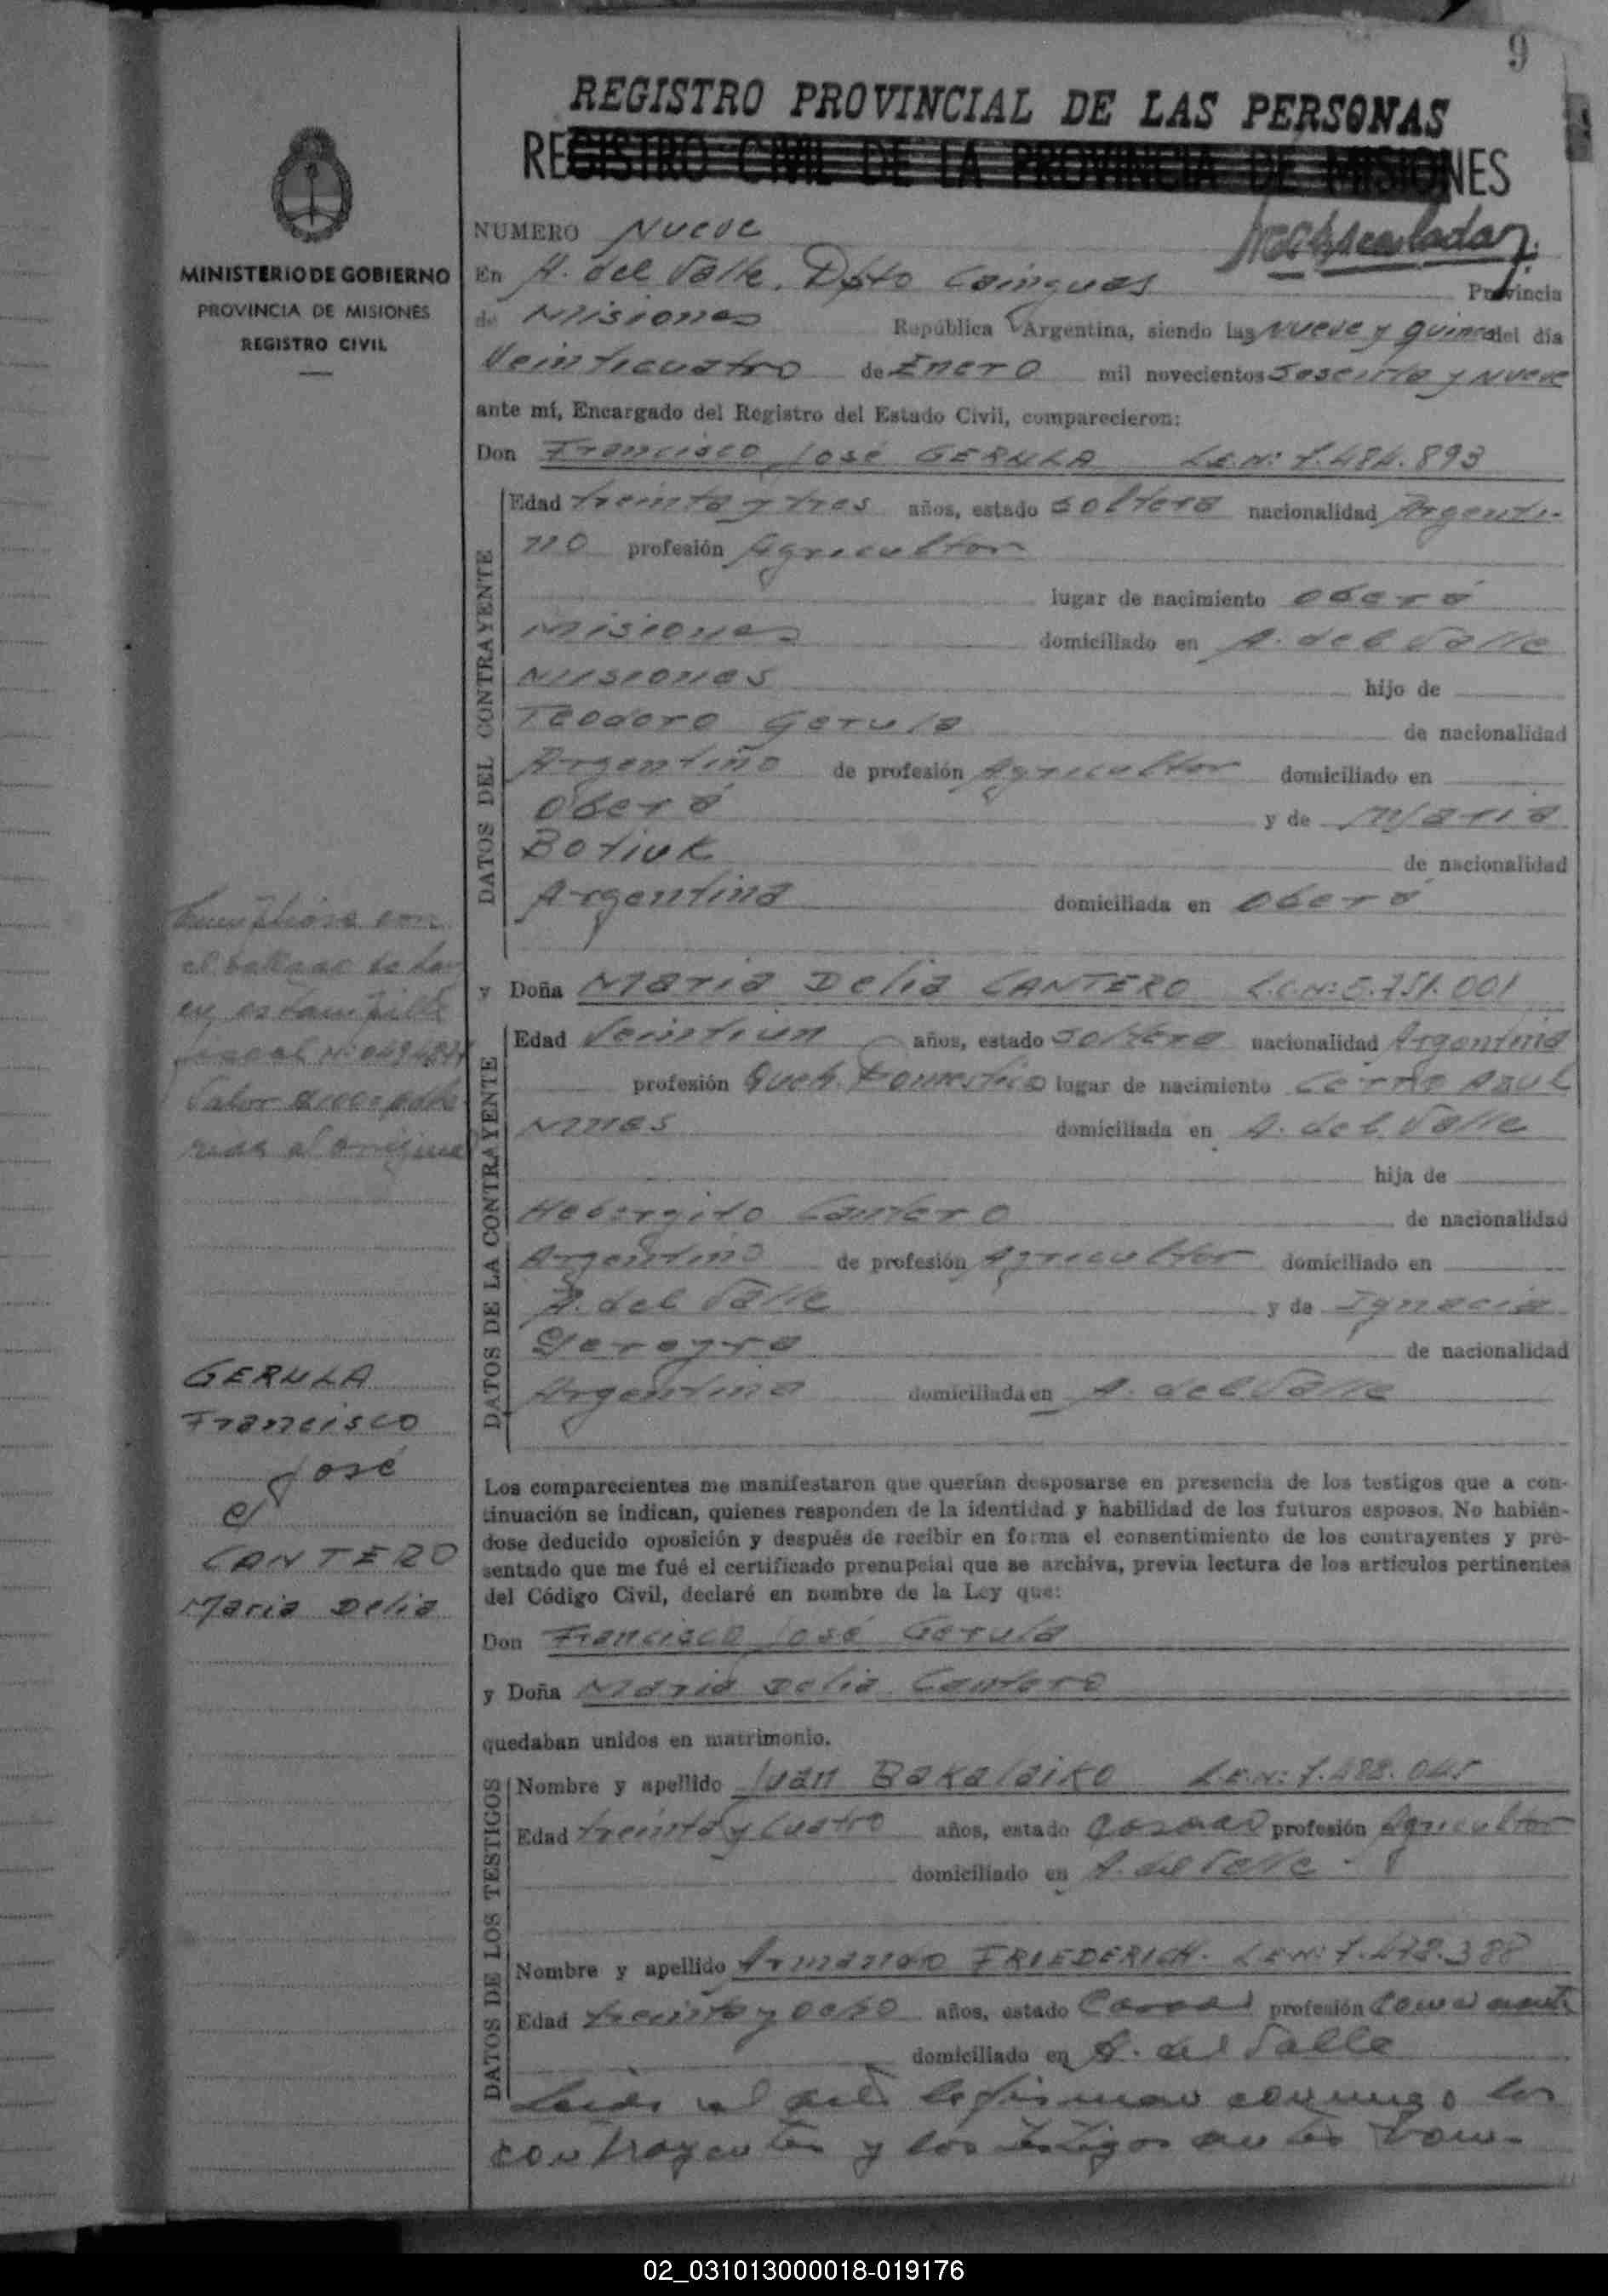 9
REGISTRO PROVINCIAL DE LAS PERSONAS
REGISTRO CIVIL DE LA PROVINCIA DE MISIONES
MINISTERIO DE GOBIERNO
PROVINCIA DE MISIONES
REGISTRO CIVIL
NUMERO Nueve
En A. del Valle. Dpto Cainguas Provincia
de Misiones República Argentina, siendo las Nueve y quince del día
Veinticuatro de Enero mil novecientos Sesenta y Nueve
ante mí, Encargado del Registro del Estado Civil, comparecieron:
Don Francisco José GERULA L.E.N: 7.484.893
DATOS DEL CONTRAYENTE
Edad treinta y tres años, estado soltero nacionalidad Argenti-
no profesión Agricultor
lugar de nacimiento Oberá
Misiones domiciliado en A. del Valle
Misiones hijo de
Teodoro Gerula de nacionalidad
Argentino de profesión Agricultor domiciliado en
Oberá y de Maria
Botiuk de nacionalidad
Argentina domiciliada en Oberá
y Doña Maria Delia CANTERO L.C.N: 5.751.001
DATOS DE LA CONTRAYENTE
Edad Veintiun años, estado Soltera nacionalidad Argentina
profesión Queh. Domestico lugar de nacimiento Cerro Azul
Mnes domiciliada en A. del Valle
hija de
Cantero de nacionalidad
Argentino de profesión Agricultor domiciliado en
A. del Valle y de Ignacia
de nacionalidad
Argentina domiciliada en A. del Valle
en estampilla
GERULA
Francisco
José
c/
CANTERO
Maria Delia
Los comparecientes me manifestaron que querían desposarse en presencia de los testigos que a con-
tinuación se indican, quienes responden de la identidad y habilidad de los futuros esposos. No habién-
dose deducido oposición y después de recibir en forma el consentimiento de los contrayentes y pre-
sentado que me fué el certificado prenupcial que se archiva, previa lectura de los artículos pertinentes
del Código Civil, declaré en nombre de la Ley que:
Don Francisco José Gerula
y Doña Maria Delia Cantero
quedaban unidos en matrimonio.
DATOS DE LOS TESTIGOS
Nombre y apellido Juan Bakalaiko L.E.N: 7.488.045
Edad treinta y cuatro años, estado casado profesión Agricultor
domiciliado en A. del Valle -
Nombre y apellido Armando FRIEDERICH. L.E.N: 7.478.388
Edad treinta y ocho años, estado Casado profesión Comerciante
domiciliado en A. del Valle
Leida el acta la firman conmigo los
contrayentes y los testigos antes nom-
02_031013000018-019176